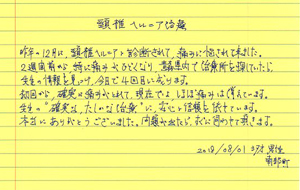 頚椎ヘルニア治療
昨年の12月に、頚椎ヘルニアと診断されて、痛みに悩されて来ました。
2週間前から特に痛みがひどくなり、青森県内で治療所を探していたら、
先生の情報を見つけ、今日で4回目になります。
初回から、確実に痛みがとれて、現在ではほぼ痛みは消えています。
先生の"確実な、たしかな治療"に、安心と信頼を依せています。
本当にありがとうございました。問題が出たら、又に伺わせて頂きます。
2018/08/01 男性
南部町